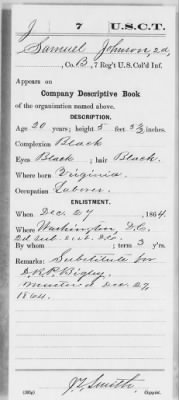 J 7 U.S.C.T.
Samuel Johnson, 2d,
, Co. B, 7 Reg't U.S. Col'd Inf.
Appears on
Company Descriptive Book
of the organization named above.
DESCRIPTION.
Age 20 years; height 5 feet 3½ inches.
Complexion Black
Eyes Black; hair Black.
Where born Virginia.
Occupation Laborer.
ENLISTMENT.
When Dec. 27, 1864.
Where Washington, D.C.
2d Sub. Dist. D.C.
By whom ; term 3 y'rs.
Remarks: Substitute for
D.R.P. Bigley.
Mustered Dec 27,
1864.
J. Smith,
Copyist.